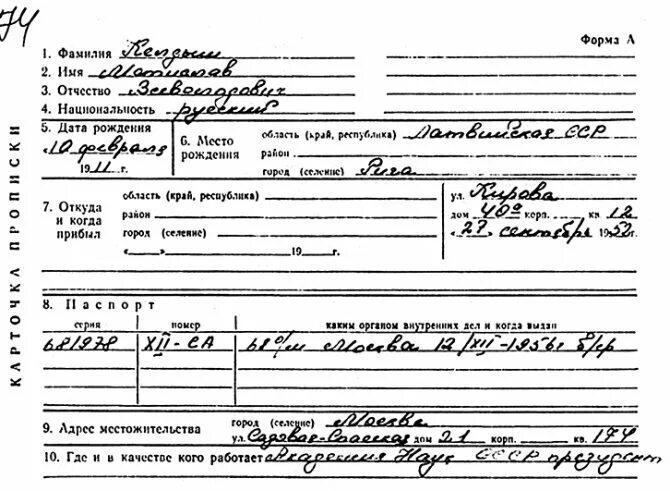 174
Форма А
КАРТОЧКА ПРОПИСКИ
1. Фамилия Келдыш
2. Имя Мстислав
3. Отчество Всеволодович
4. Национальность русский
5. Дата рождения
10 февраля
1911 г.
6. Место рождения
область (край, республика) Латвийская ССР
район
город (селение) Рига
7. Откуда и когда прибыл
область (край, республика)
район
город (селение)
« » 19 г.
ул. Кирова
дом 40а корп. кв 12
« 27 » сентября 1952 г.
8. Паспорт
серия номер каким органом внутренних дел и когда выдан
681978 XII-СА 68 о/м Москва 12/XII-1956г б/ср
9. Адрес местожительства
город (селение) Москва
ул. Садовая-Спасская дом 21 корп. кв. 174
10. Где и в качестве кого работает Академия Наук СССР президент